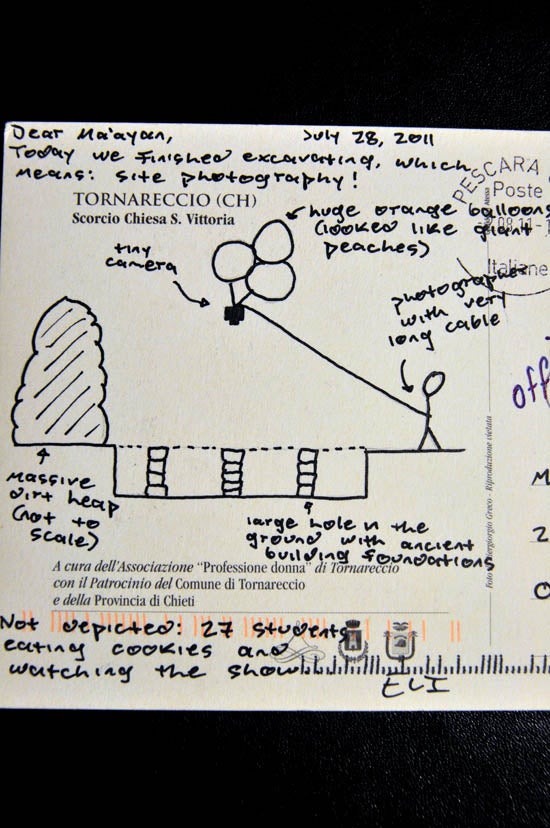 Dear Ma'ayan,
July 28, 2011
Today we finished excavating, which
means: site photography!
TORNARECCIO (CH)
Scorcio Chiesa S. Vittoria
PESCARA
Poste
Italiane
huge orange balloons
(looked like giant
peaches)
tiny
camera
photographer
with very
long cable
off
massive
dirt heap
(not to
scale)
large hole in the
ground with ancient
building foundations
A cura dell'Associazione "Professione donna" di Tornareccio
con il Patrocinio del Comune di Tornareccio
e della Provincia di Chieti
Foto Piergiorgio Greco - Riproduzione vietata
M
2
O
Not depicted: 27 students
eating cookies and
watching the show...
ELI